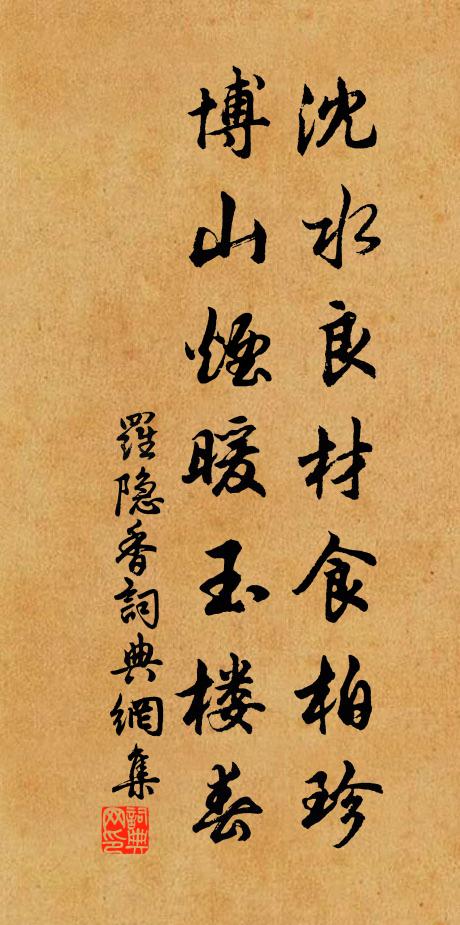 沈水良材食柏珍
博山煙暖玉楼春
羅隐香詞典網集
詞典网印